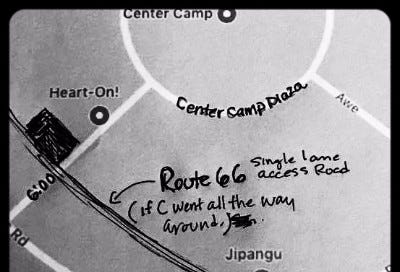 Center Camp
Heart-On!
Center Camp Plaza
Awe
6:00
Route 66 Single lane
access Road
(if C went all the way
around.)
Rd
Jipangu